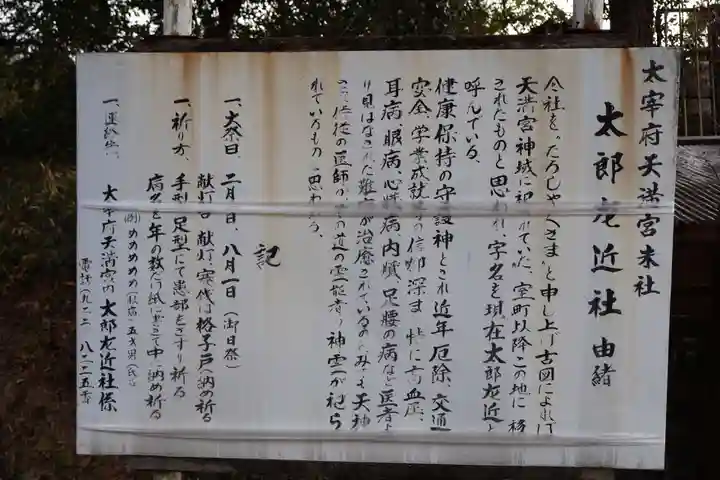 太宰府天満宮末社
太郎左近社 由緒
今社を"たろじゃくさま"と申し上げ古図によれば
天満宮神域に祀られていた、室町以降この地に移
されたものと思われ、字名を現在太郎左近と
呼んでいる。
健康保持の守護神とされ近年厄除、交通
安全、学業成就の信仰深ま 特に高血圧、
耳病、眼病、心臓病、内臓、足腰の病など医者よ
り見はなされた難病が治癒されているの みても天神
に 従の医師か その道の霊能者の神霊が祀ら
れているものと思われる。
記
一、大祭日、二月一日、八月一日(御日祭)
献灯台 献灯、寅代は格子戸へ納め祈る
一、祈り方、手型、足型にて患部をさすり祈る
病名を年の数だけ紙に書きて中へ納め祈る
(例)めめめめめ(眼病)五才男(氏名)
一、連絡先、太宰府天満宮内 太郎左近社係
電話(九二) 八二二五番